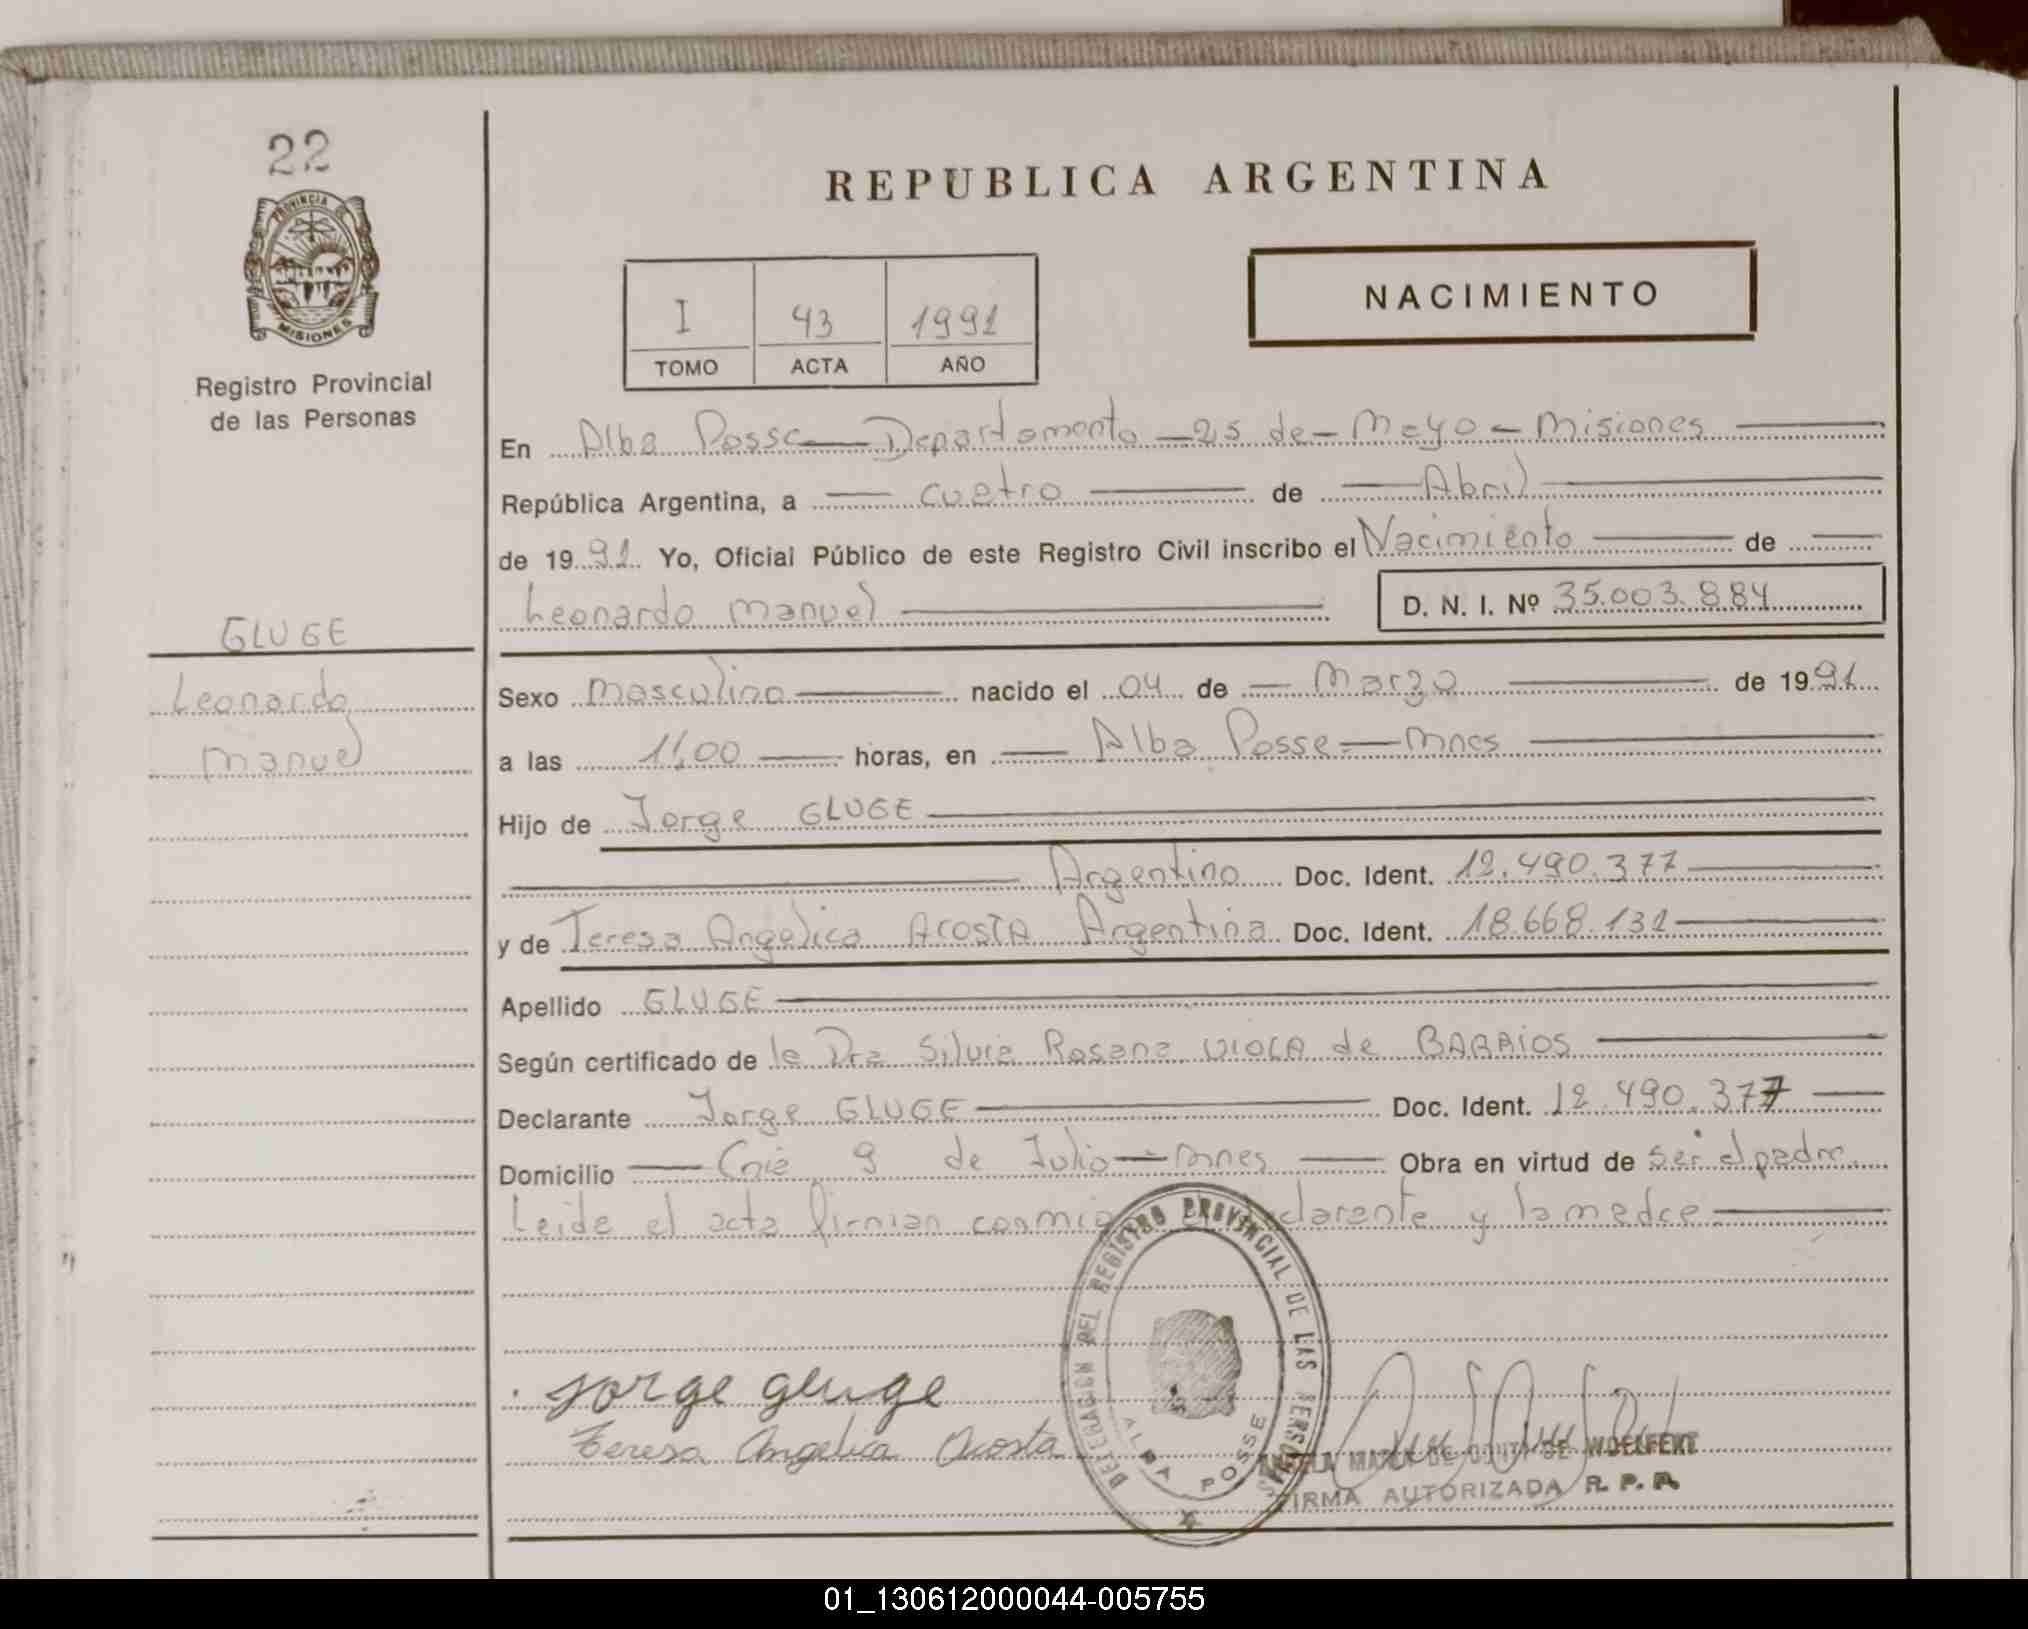 22
PROVINCIA DE
MISIONES
Registro Provincial
de las Personas
REPUBLICA ARGENTINA
NACIMIENTO
I 43 1991
TOMO ACTA AÑO
En Alba Posse Departamento 25 de Mayo - Misiones
República Argentina, a cuatro de Abril
de 1991 Yo, Oficial Público de este Registro Civil inscribo el Nacimiento de
Leonardo Manuel D. N. I. Nº 35.003.884
GLUGE
Leonardo
Manuel
Sexo Masculino nacido el 04 de Marzo de 1991
a las 11,00 horas, en Alba Posse - Mnes
Hijo de Jorge GLUGE
Argentino Doc. Ident. 12.490.377
y de Teresa Angelica ACOSTA Argentina Doc. Ident. 18.668.132
Apellido GLUGE
Según certificado de la Dra Silvia Rosana VIOLA de BARRIOS
Declarante Jorge GLUGE Doc. Ident. 12.490.377
Domicilio Cnia 9 de Julio - Mnes Obra en virtud de ser el padre.
Leida el acta firman conmigo el declarante y la madre
DELEGACION DEL REGISTRO PROVINCIAL DE LAS PERSONAS
ALBA POSSE
Jorge gluge
Teresa Angelica Acosta
DE WOELFERT
FIRMA AUTORIZADA R. P. P.
01_130612000044-005755